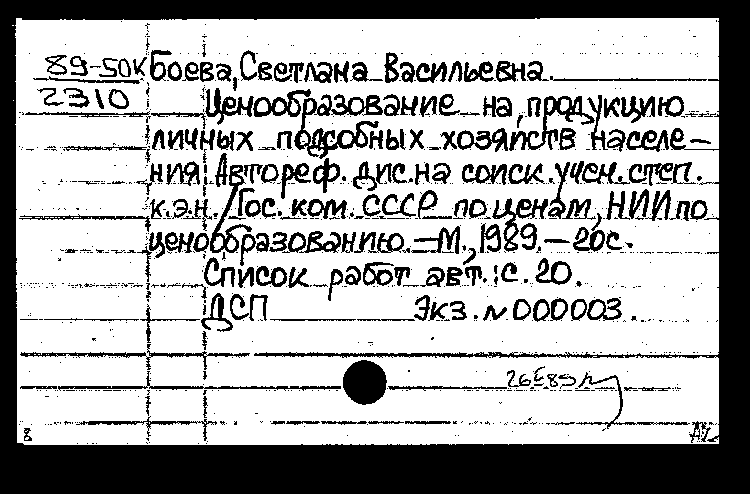 89-50К Боева, Светлана Васильевна.
2310 Ценообразование на продукцию
личных подсобных хозяйств населе-
ния: Автореф. дис. на соиск. учен. степ.
к.э.н. / Гос. ком. СССР по ценам, НИИ по
ценообразованию. - М., 1989. - 20с.
Список работ авт.: с. 20.
ДСП Экз. № 000003.
8